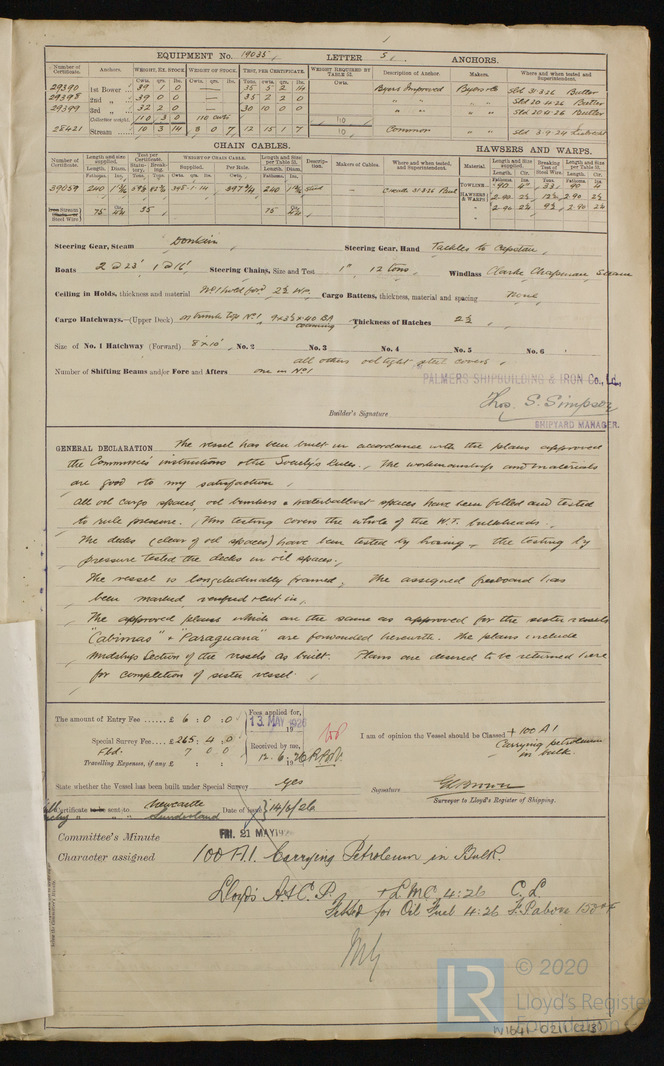 EQUIPMENT No. 19035, LETTER S, ANCHORS.
Number of Certificate. Anchors. WEIGHT, EX. STOCK. WEIGHT OF STOCK. TEST, PER CERTIFICATE. WEIGHT REQUIRED BY TABLE 31. Description of Anchor. Makers. Where and when tested and Superintendent.
29390 1st Bower 39 1 0 — 35 5 2 14 Byers Improved Byers & Co Sld 31.3.26 Butler
29398 2nd " 39 0 0 — 35 2 2 0 " " " " Sld 20.4.26 Butler
29399 3rd " 32 2 0 — 30 10 0 0 " " " " Sld 20.4.26 Butler
Collective weight 110 3 0 110 cwts 110
25421 Stream 10 3 14 2 0 7 12 15 1 7 10 Common " " Sld 3.9.24
CHAIN CABLES. HAWSERS AND WARPS.
Number of Certificate. Length and size supplied. Test per Certificate. WEIGHT OF CHAIN CABLE. Length and size per Table 31. Description. Makers of Cables. Where and when tested, and Superintendent. Material. Length and size supplied. Breaking Test of Steel Wire. Length and size per Table 31.
Stream 75 35 75
Steel Wire
TOWLINE 90 4" 33 90 4
HAWSERS & WARPS 2-90 2½ 2-90 2½
2-90 2¼ 9½ 2-90
Steering Gear, Steam Donkin, Steering Gear, Hand Tackles to Capstan,
Boats 2 @ 23' 1 @ 16', Steering Chains, Size and Test 1" 12 tons, Windlass Clarke Chapman, Steam
Ceiling in Holds, thickness and material No 1 hold for'd, 2½ WP, Cargo Battens, thickness, material and spacing None,
Cargo Hatchways.—(Upper Deck) on trunk top No 1, 9x3½x40 BA coaming Thickness of Hatches 2½,
Size of No. 1 Hatchway (Forward) 8' x 10', No. 2 No. 3 No. 4 No. 5 No. 6
all others oil tight steel covers,
Number of Shifting Beams and/or Fore and Afters one in No 1
PALMERS SHIPBUILDING & IRON Co., Ld.,
Builder's Signature Thos. S. Simpson
SHIPYARD MANAGER.
GENERAL DECLARATION The vessel has been built in accordance with the plans approved
the Committee's instructions & the Society's Rules., The workmanship and materials
are good & to my satisfaction,
All oil cargo spaces, oil bunkers & waterballast spaces have been filled and tested
to rule pressure. This testing covers the whole of the W.T. bulkheads,
The decks (clear of oil spaces) have been tested by hosing, the testing by
pressure tested the decks in oil spaces,
The vessel is longitudinally framed, The assigned freeboard has
been marked verified & cut in,
The approved plans which are the same as approved for the sister vessels
"Cabimas" & "Paraguana" are forwarded herewith. The plans include
Midship Section of the vessels as built. Plans are desired to be returned here
for completion of sister vessel.
The amount of Entry Fee ...... £ 6 : 0 : 0
Special Survey Fee... £265 : 4 : 0
Fbd. 7 0 0
Travelling Expenses, if any £ : :
Fees applied for, 13 MAY 1926
Received by me, 12.6.1926
I am of opinion the Vessel should be Classed + 100 A1
Carrying petroleum in bulk.
State whether the Vessel has been built under Special Survey yes
Signature
Surveyor to Lloyd's Register of Shipping.
Certificate to be sent to Newcastle Date of issue 14/6/26
Sunderland
Committee's Minute FRI. 21 MAY 1926
Character assigned 100 A.1. Carrying Petroleum in Bulk.
Lloyd's A & C.P. + LMC 4.26 C.L.
Fitted for Oil Fuel 4.26 F.P. above 150°F
LR © 2020
Lloyd's Register
Foundation
W1641-0211 (2/3)